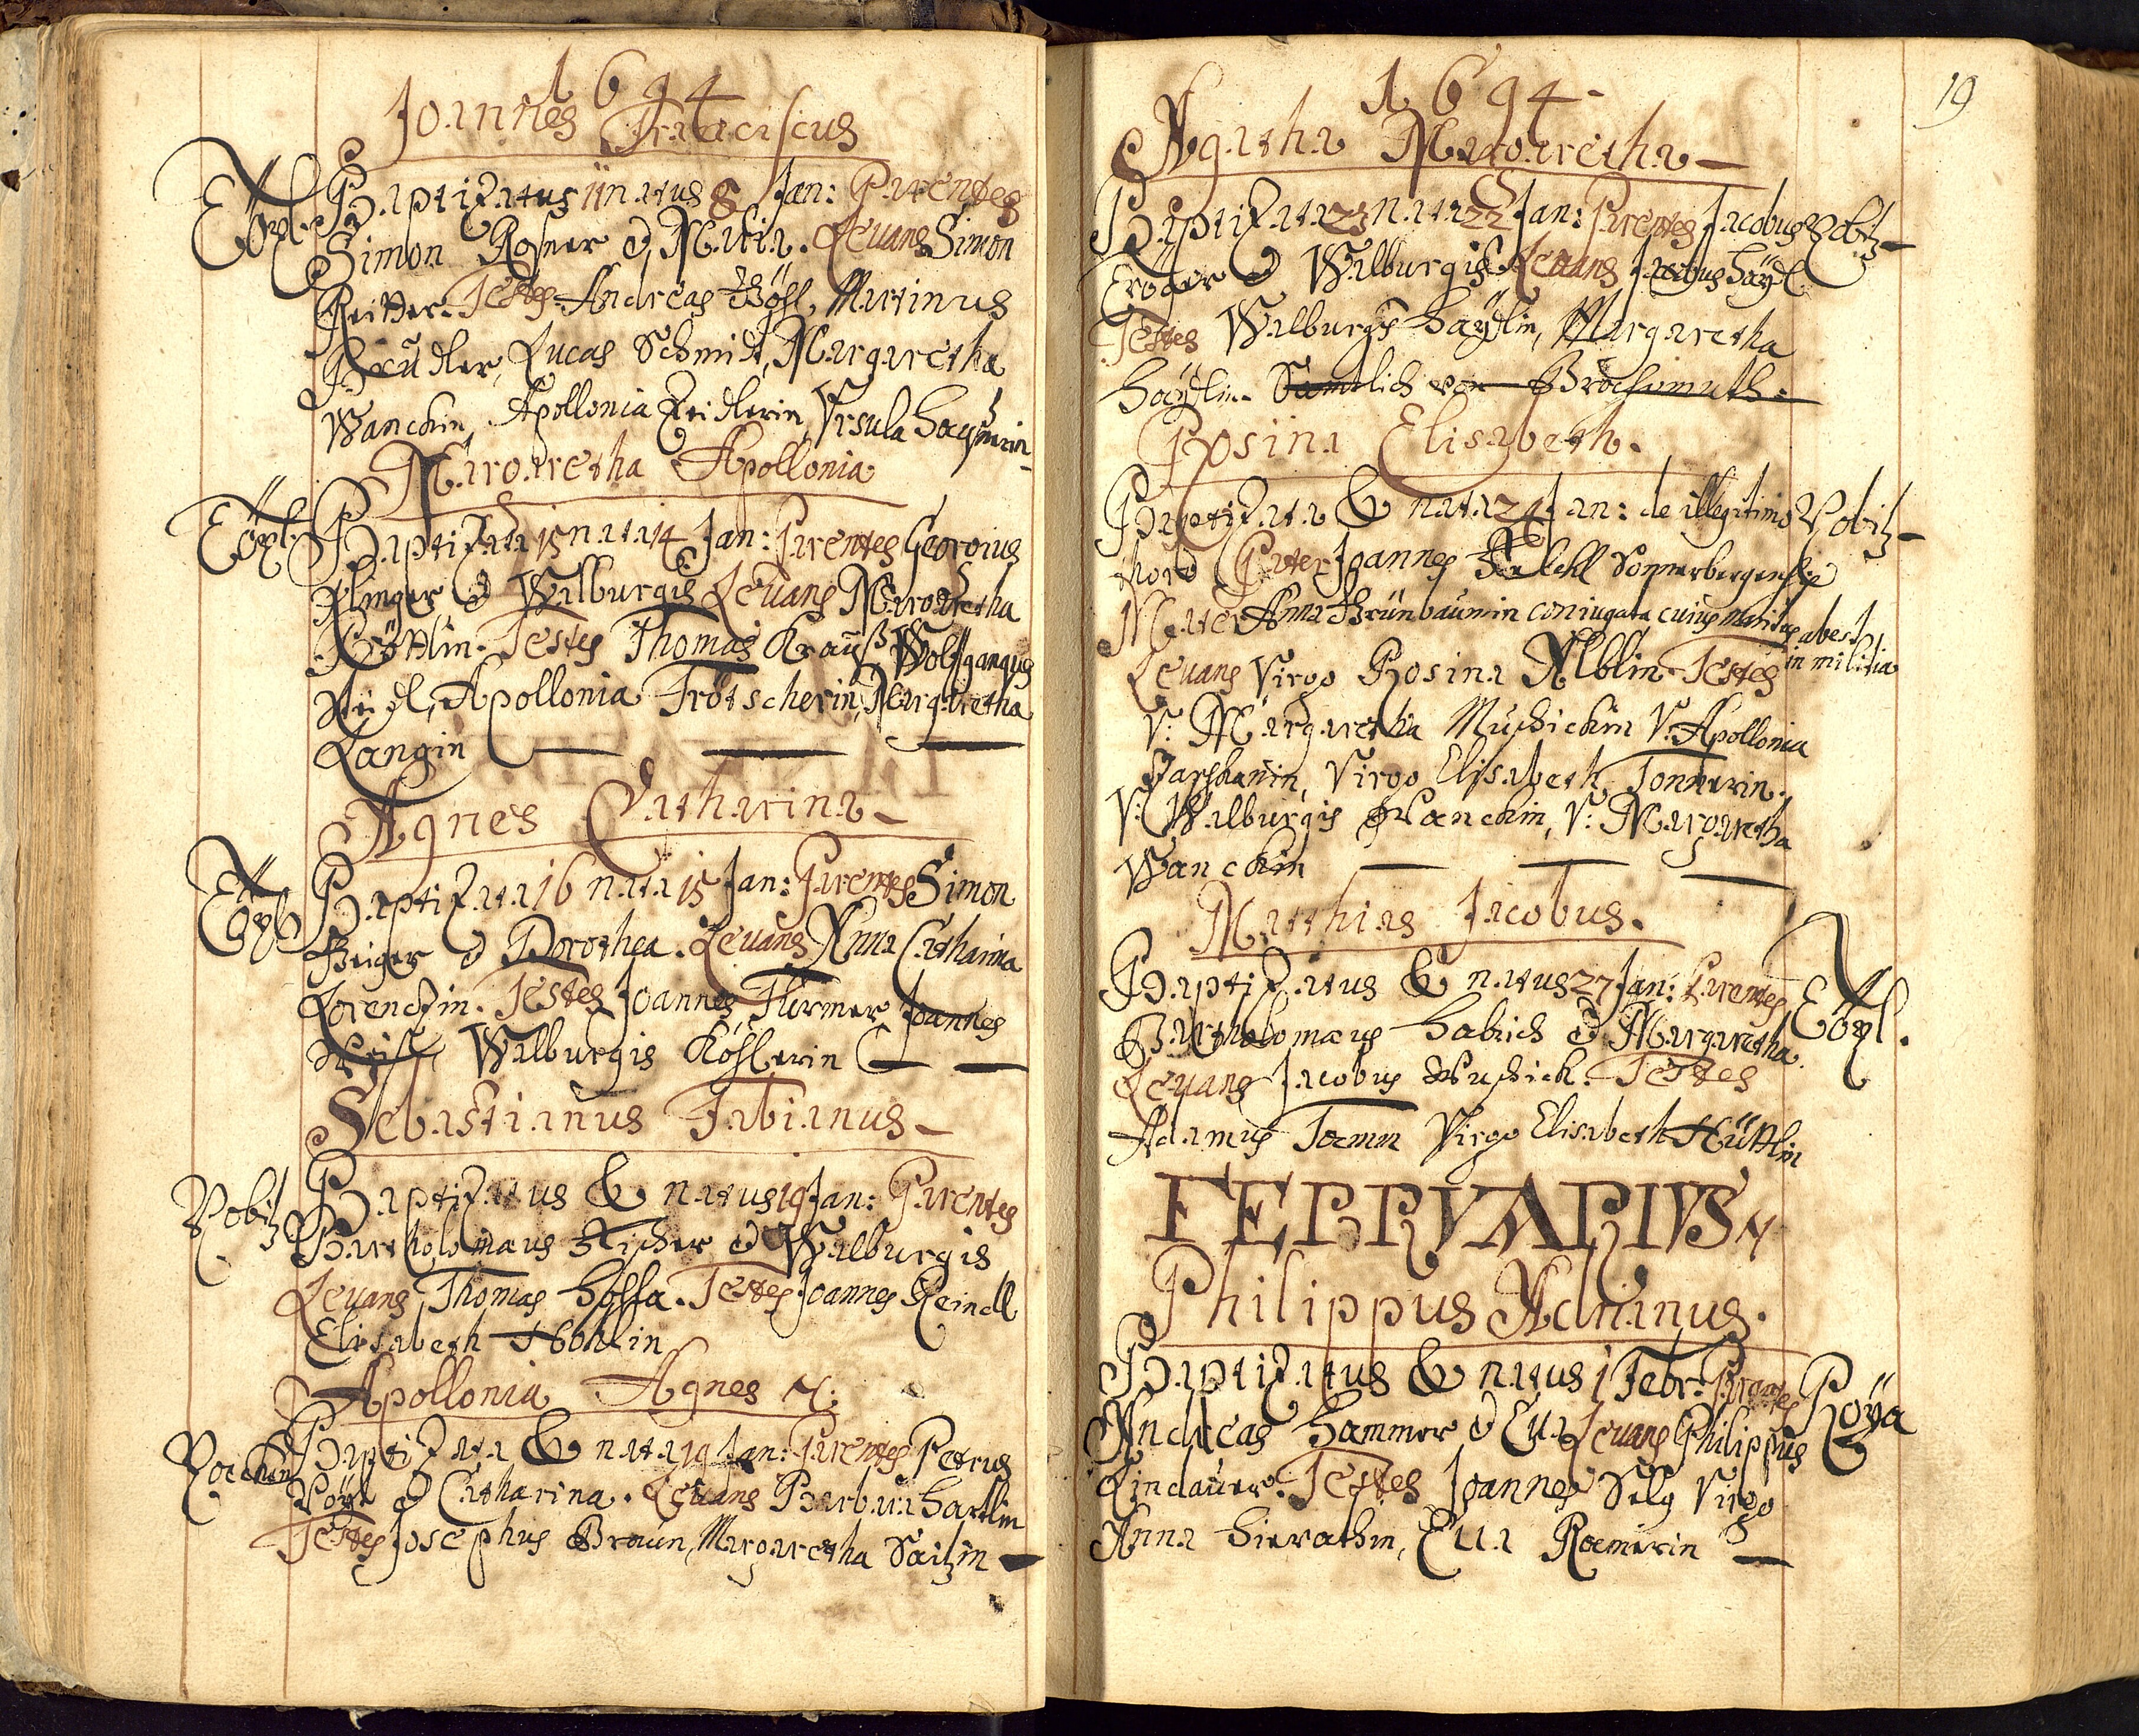 1694
Joannes Franciscus
Baptizatus 11 natus 8 Jan: Parentes
Simon Rosner & Maria. Levans Simon
Reitter. Testes Andreas Bösl, Martinus
Lucas Schmidt, Margaretha
Wanckin, Apollonia Zeidlerin, Ursula
Margaretha Apollonia
Baptizata 15 nata 14 Jan: Parentes Georgius
Klinger & Walburgis Levans Margaretha
Testes Thomas Krauß, Wolfgangus
Apollonia Trötscherin, Margaretha
Langin
Agnes Catharina
Baptizata 16 nata 15 Jan: Parentes Simon
Geiger & Dorothea. Levans Anna Catharina
Lorenczin. Testes Joannes Thürmer, Joannes
Walburgis Köslerin
Sebastianus Fabianus
Pobitz
Baptizatus & natus 19 Jan: Parentes
Bartholomæus Fischer & Walburgis
Levans Thomas Testes Joannes Reindl
Elisabeth
Apollonia Agnes
Baptizata & nata 19 Jan: Parentes Petrus
& Catharina. Levans Barbara Hartlin
Testes Josephus Braun, Margaretha
19
1694
Agatha Margaretha
Baptizata 23 nata 22 Jan: Parentes Jacobus Pobitz
& Walburgis. Levans Jacobus Häÿdl
Testes Walburgis Haÿdlin, Margaretha
Haÿdlin. Samtlich von
Rosina Elisabeth.
Baptizata & nata 24 Jan: de illegitimo Pobitz
thoro Pater Joannes Sonnerbergensis
Mater Anna Grünbaumin coniugata, cuius maritus abest
in militia
Levans Virgo Rosina Alblin Testes
V: Margaretha Muschickin V: Apollonia
Virgo Elisabeth Tonnerin.
V: Walburgis Wanckin, V: Margaretha
Wanckin
Matthias Jacobus.
Baptizatus & natus 27 Jan: Parentes
Bartholomæus Habich & Margaretha.
Levans Jacobus Muschick. Testes
Adamus Virgo Elisabeth Hüttlin
FEBRVARIVS
Philippus Adamus.
Baptizatus & natus 1 Febr: Parentes
Andreas Hammer & Eva Levans Philippus
Lindauer. Testes Joannes Selg Virgo
Anna Hierathin, Eva Roemerin